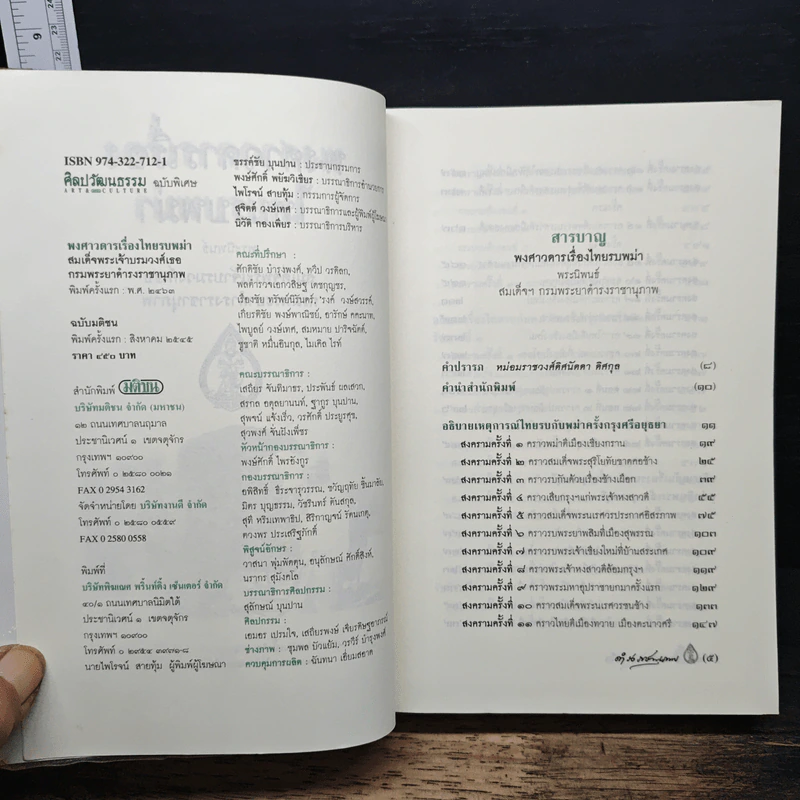 ISBN 974-322-712-1
ศิลปวัฒนธรรม ฉบับพิเศษ
ART & CULTURE
พงศาวดารเรื่องไทยรบพม่า
สมเด็จพระเจ้าบรมวงศ์เธอ
กรมพระยาดำรงราชานุภาพ
พิมพ์ครั้งแรก : พ.ศ. ๒๔๖๓
ฉบับมติชน
พิมพ์ครั้งแรก : สิงหาคม ๒๕๔๕
ราคา ๔๕๐ บาท
สำนักพิมพ์ มติชน
บริษัทมติชน จำกัด (มหาชน)
๑๒ ถนนเทศบาลนฤมาล
ประชานิเวศน์ ๑ เขตจตุจักร
กรุงเทพฯ ๑๐๙๐๐
โทรศัพท์ ๐ ๒๕๘๐ ๐๐๒๑
FAX 0 2954 3162
จัดจำหน่ายโดย บริษัทงานดี จำกัด
โทรศัพท์ ๐ ๒๕๘๐ ๐๕๕๙
FAX 0 2580 0558
พิมพ์ที่
บริษัทพิฆเณศ พริ้นท์ติ้ง เซ็นเตอร์ จำกัด
๔๐/๑ ถนนเทศบาลนิมิตใต้
ประชานิเวศน์ ๑ เขตจตุจักร
กรุงเทพฯ ๑๐๙๐๐
โทรศัพท์ ๐ ๒๙๕๔ ๓๙๙๑-๘
นายไพโรจน์ สายทุ้ม ผู้พิมพ์ผู้โฆษณา
ขรรค์ชัย บุนปาน : ประธานกรรมการ
พงษ์ศักดิ์ พยัฆวิเชียร : บรรณาธิการอำนวยการ
ไพโรจน์ สายทุ้ม : กรรมการผู้จัดการ
สุจิตต์ วงษ์เทศ : บรรณาธิการและผู้พิมพ์ผู้โฆษณา
นิวัติ กองเพียร : บรรณาธิการบริหาร
คณะที่ปรึกษา :
ศักดิชัย บำรุงพงศ์, ทวีป วรดิลก,
พลตำรวจเอกวสิษฐ เดชกุญชร,
เรืองชัย ทรัพย์นิรันดร์, 'รงค์ วงษ์สวรรค์,
เกียรติชัย พงษ์พาณิชย์, อารักษ์ คคะนาท,
ไพบูลย์ วงษ์เทศ, สมหมาย ปาริจฉัตต์,
ชูชาติ หมื่นอินกุล, ไมเคิล ไรท์
คณะบรรณาธิการ :
เสถียร จันทิมาธร, ประพันธ์ ผลเสวก,
สรกล อดุลยานนท์, ฐากูร บุนปาน,
สุพจน์ แจ้งเร็ว, วรศักดิ์ ประยูรศุข,
สุวพงศ์ จั่นฝังเพ็ชร
หัวหน้ากองบรรณาธิการ :
พงษ์ศักดิ์ ไพรอังกูร
กองบรรณาธิการ :
อพิสิทธิ์ ธีระจารุวรรณ, ขวัญฤทัย ชื้นมาลัย,
มิตร บุญธรรม, วัชรินทร์ ตันสกุล,
สุที หริมเทพาธิป, สิริกาญจน์ รัตนเกตุ,
ดวงพร ประเสริฐภักดิ์
พิสูจน์อักษร :
วาสนา พุ่มพัดตุน, อนุลักษณ์ ศักดิ์สิงห์,
นรากร สุมังคโล
บรรณาธิการศิลปกรรม :
สุลักษณ์ บุนปาน
ศิลปกรรม :
เอมอร เปรมใจ, เสถียรพงษ์ เจียรดิษฐอาภรณ์
ช่างภาพ : ชุมพล บัวแย้ม, วรวีร์ บำรุงพงศ์
ควบคุมการผลิต : ฉันทนา เยี่ยมสอาด
สารบาญ
พงศาวดารเรื่องไทยรบพม่า
พระนิพนธ์
สมเด็จฯ กรมพระยาดำรงราชานุภาพ
คำปรารภ หม่อมราชวงศ์ดิศนัดดา ดิศกุล (๘)
คำนำสำนักพิมพ์ (๑๐)
อธิบายเหตุการณ์ไทยรบกับพม่าครั้งกรุงศรีอยุธยา ๑๑
สงครามครั้งที่ ๑ คราวพม่าตีเมืองเชียงกราน ๑๙
สงครามครั้งที่ ๒ คราวสมเด็จพระสุริโยทัยขาดคอช้าง ๒๕
สงครามครั้งที่ ๓ คราวรบกันด้วยเรื่องช้างเผือก ๓๙
สงครามครั้งที่ ๔ คราวเสียกรุงฯแก่พระเจ้าหงสาวดี ๕๕
สงครามครั้งที่ ๕ คราวสมเด็จพระนเรศวรประกาศอิสรภาพ ๗๕
สงครามครั้งที่ ๖ คราวรบพระยาพสิมที่เมืองสุพรรณ ๑๐๓
สงครามครั้งที่ ๗ คราวรบพระเจ้าเชียงใหม่ที่บ้านสระเกศ ๑๐๙
สงครามครั้งที่ ๘ คราวพระเจ้าหงสาวดีล้อมกรุงฯ ๑๑๙
สงครามครั้งที่ ๙ คราวพระมหาอุปราชายกมาครั้งแรก ๑๒๙
สงครามครั้งที่ ๑๐ คราวสมเด็จพระนเรศวรชนช้าง ๑๓๓
สงครามครั้งที่ ๑๑ คราวไทยตีเมืองทวาย เมืองตะนาวศรี ๑๔๗
(๕)